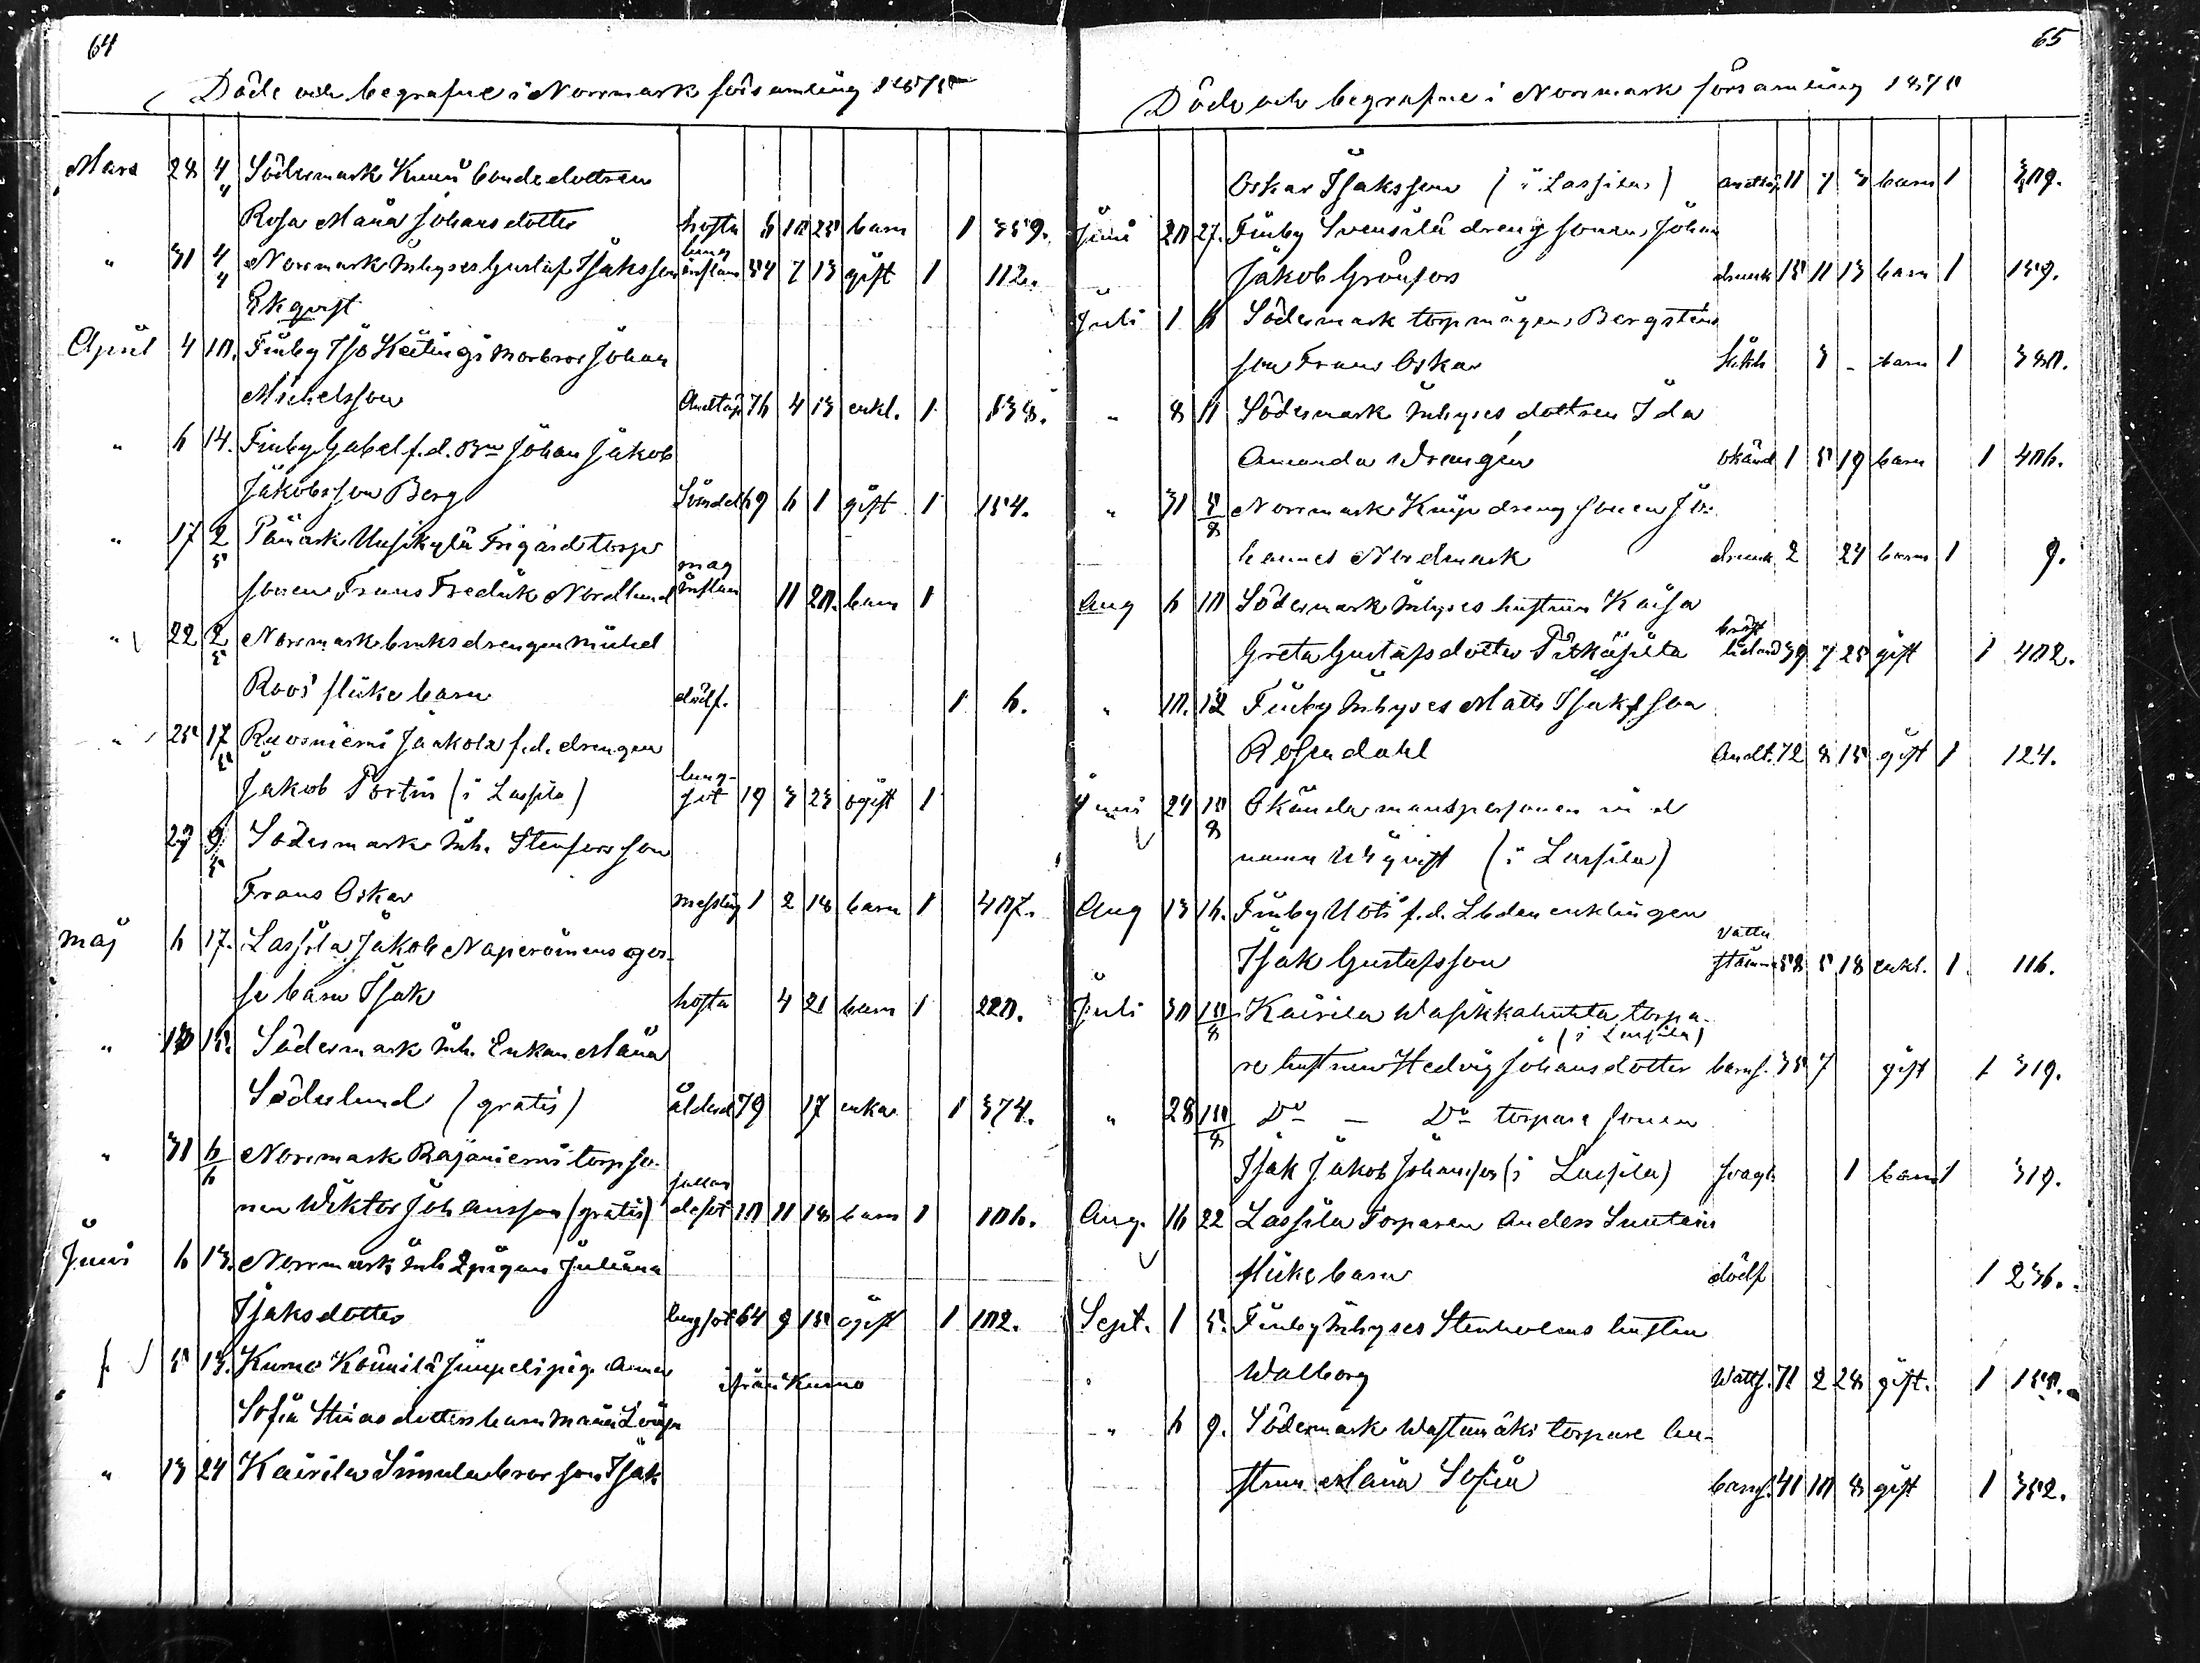 64
Döde och begrafne i Norrmark församling 1875
Mars 28 4/4 Södermark Knuus bondedottren
Rosa Maria Johansdotter hosta 6 10 25 barn 1 359.
" 31 4/4 Norrmark Inhyses Gustaf Isaksson lung inflam 54 7 13 gift 1 112.
Ekqvist
April 4 10. Finby Iso Keitingi morbror Johan
Michelsson Andtäp 76 4 13 enkl. 1 138.
" 6 14. Finby Gabel f.d. Bn Johan Jakob
Jakobsson Berg 69 6 1 gift 1 154.
" 17 2/5 Påmark Uusikylä Frigård torp
sonen Frans Fredrik Nordlund mag inflam 11 20. barn 1
" 22 2/5 Norrmark bruksdrengen Mickel
Roos' flickebarn dödf. 1 6.
" 25 17/5 Ruosniemi Jaakola f.d. drengen
Jakob Portin (i Lassila) lung-sot 19 3 23 ogift 1
29 9/5 Södermark Inh. Stenfors son
Frans Oskar messling 1 2 18 barn 1 407.
Maj 6 17. Lassila Jakob Naperöinens gos-
se barn Isak hosta 4 21 barn 1 220.
" 15. Södermark Inh. Enkan Maria
Söderlund (gratis) ålderd 79 17 enka 1 374.
" 31 6/6 Norrmark Rajaniemi torp so-
nen Wiktor Johansson (gratis) fallandesot 10 11 18 barn 1 106.
Juni 6 13. Norrmark Inh pigan Juliana
Isaksdotter lungsot 64 9 15 ogift 1 102.
5 13. Kumo Koömilä pig. Anna
Sofia Stinasdotters barn Maria ifrån Kumo
" 13 24 Kairila Simula bror son Isak
65
Döde och begrafne i Norrmark församling 1875
Oskar Isaksson (i Lassila) andtäp 11 7 3 barn 1 309.
Juni 20 27. Finby Svensilä dreng sonen Johan
Jakob Grönfors drunk 15 11 13 barn 1 159.
Juli 1 11 Södermark torpmågen Bergstens
son Frans Oskar 3 - barn 1 380.
" 8 11 Södermark Inhyses dottren Ida
Amanda Wrangén okänd 1 5 19 barn 1 406.
" 31 8/8 Norrmark dreng sonen Jo-
hannes Nordmark drunk 2 24 barn 1 9.
Aug 6 10 Södermark Inhyses hustrun Kaisa
Greta Gustafsdotter Pitkäsilta bröst lidand 39 7 25 gift 1 402.
" 10. 12 Finby Inhyses Matts Isaksson
Rosendahl Andt. 72 8 15 gift 1 124.
Juni 24 15/8 Okända mansperson
namn Wikqvist (i Lassila)
Aug 13 16. Finby Uoti f.d. Lbden enklingen
Isak Gustafsson vatten stämma 58 5 18 enkl. 1 116.
Juli 30 15/8 Kairila Wasikkahuhta torpa-
(i Lassila)
re hustrun Hedvig Johansdotter barns. 35 7 gift 1 319.
" 28 15/8 Do — Do torpare sonen
Isak Jakob Johansson (i Lassila) svagh. 1 barn 1 319.
Aug. 16 22 Lassila Torparen Anders Suutari
flicke barn dödf 1 236.
Sept. 1 5. Finby Inhyses Stenholms hustru
Walborg Watts. 71 2 28 gift. 1 150.
" 6 9. Södermark Wastamäki torpare hu-
strun Maria Sofia barns. 41 10 8 gift 1 352.